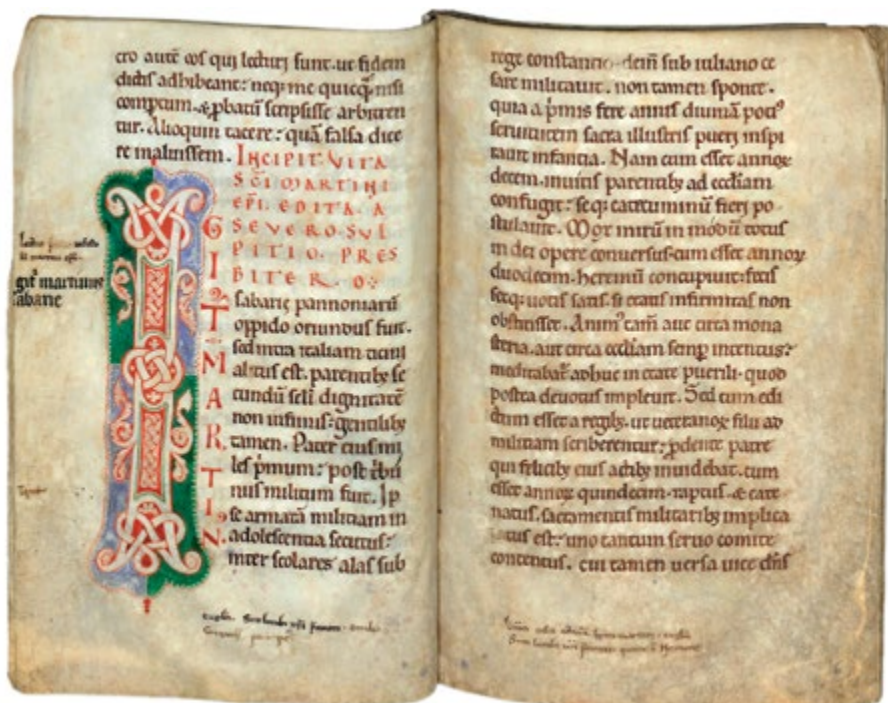 cro autē eos qui lecturi sunt. ut fidem
dictis adhibeant: neq; me quicq̄ nisi
compertum. & ꝓbatū scripsisse arbitren
tur. Alioquin tacere: quā falsa dice
re maluissem. INCIPIT VITA
SC̄I MARTINI
EP̄I. EDITA. A
SEVERO SVL
PITIO. PRES
BITERO
IGIT᷒ MARTIN᷒
sabarię pannoniarū
oppido oriundus fuit.
sed intra italiam ticini
altus est. parentibꝫ se
cundū sc̄li dignitatē
non infimis: gentilibꝫ
tamen. Pater eius mi
les p̄mum: post tribu
nus militum fuit. Ip
se armatā militiam in
adolescentia secutus:
inter scolares alas sub
git᷒ martinus
sabarie
rege constancio. dein̄ sub iuliano ce
sare militauit. non tamen sponte.
quia a p̄mis fere annis diuinā poti᷒
seruitutem sacra illustris pueri inspi
rauit infantia. Nam cum esset annoꝝ
decem. inuitis parentibꝫ ad eccl̄iam
confugit: seq; catecuminū fieri po
stulauit. Mox mirū in modū totus
in dei opere conversus. cum esset annoꝝ
duodecim. heremū concupiuit: fecis
setq; uotis satis. si etatis infirmitas non
obstitisset. Anim᷒ tam̄ aut circa mona
steria. aut circa eccl̄iam semp̄ intentus:
meditabat᷒ adhuc in etate puerili. quod
postea deuotus impleuit. Sed cum edi
ctum esset a regibꝫ. ut ueteranoꝝ filii ad
militiam scriberentur: ꝓdente patre
qui felicibꝫ eius actibꝫ inuidebat. cum
esset annoꝝ quindecim. raptus. & cate
natus. sacramentis militaribꝫ implica
tus est: uno tantum seruo comite
contentus. cui tamen uersa uice dn̄s